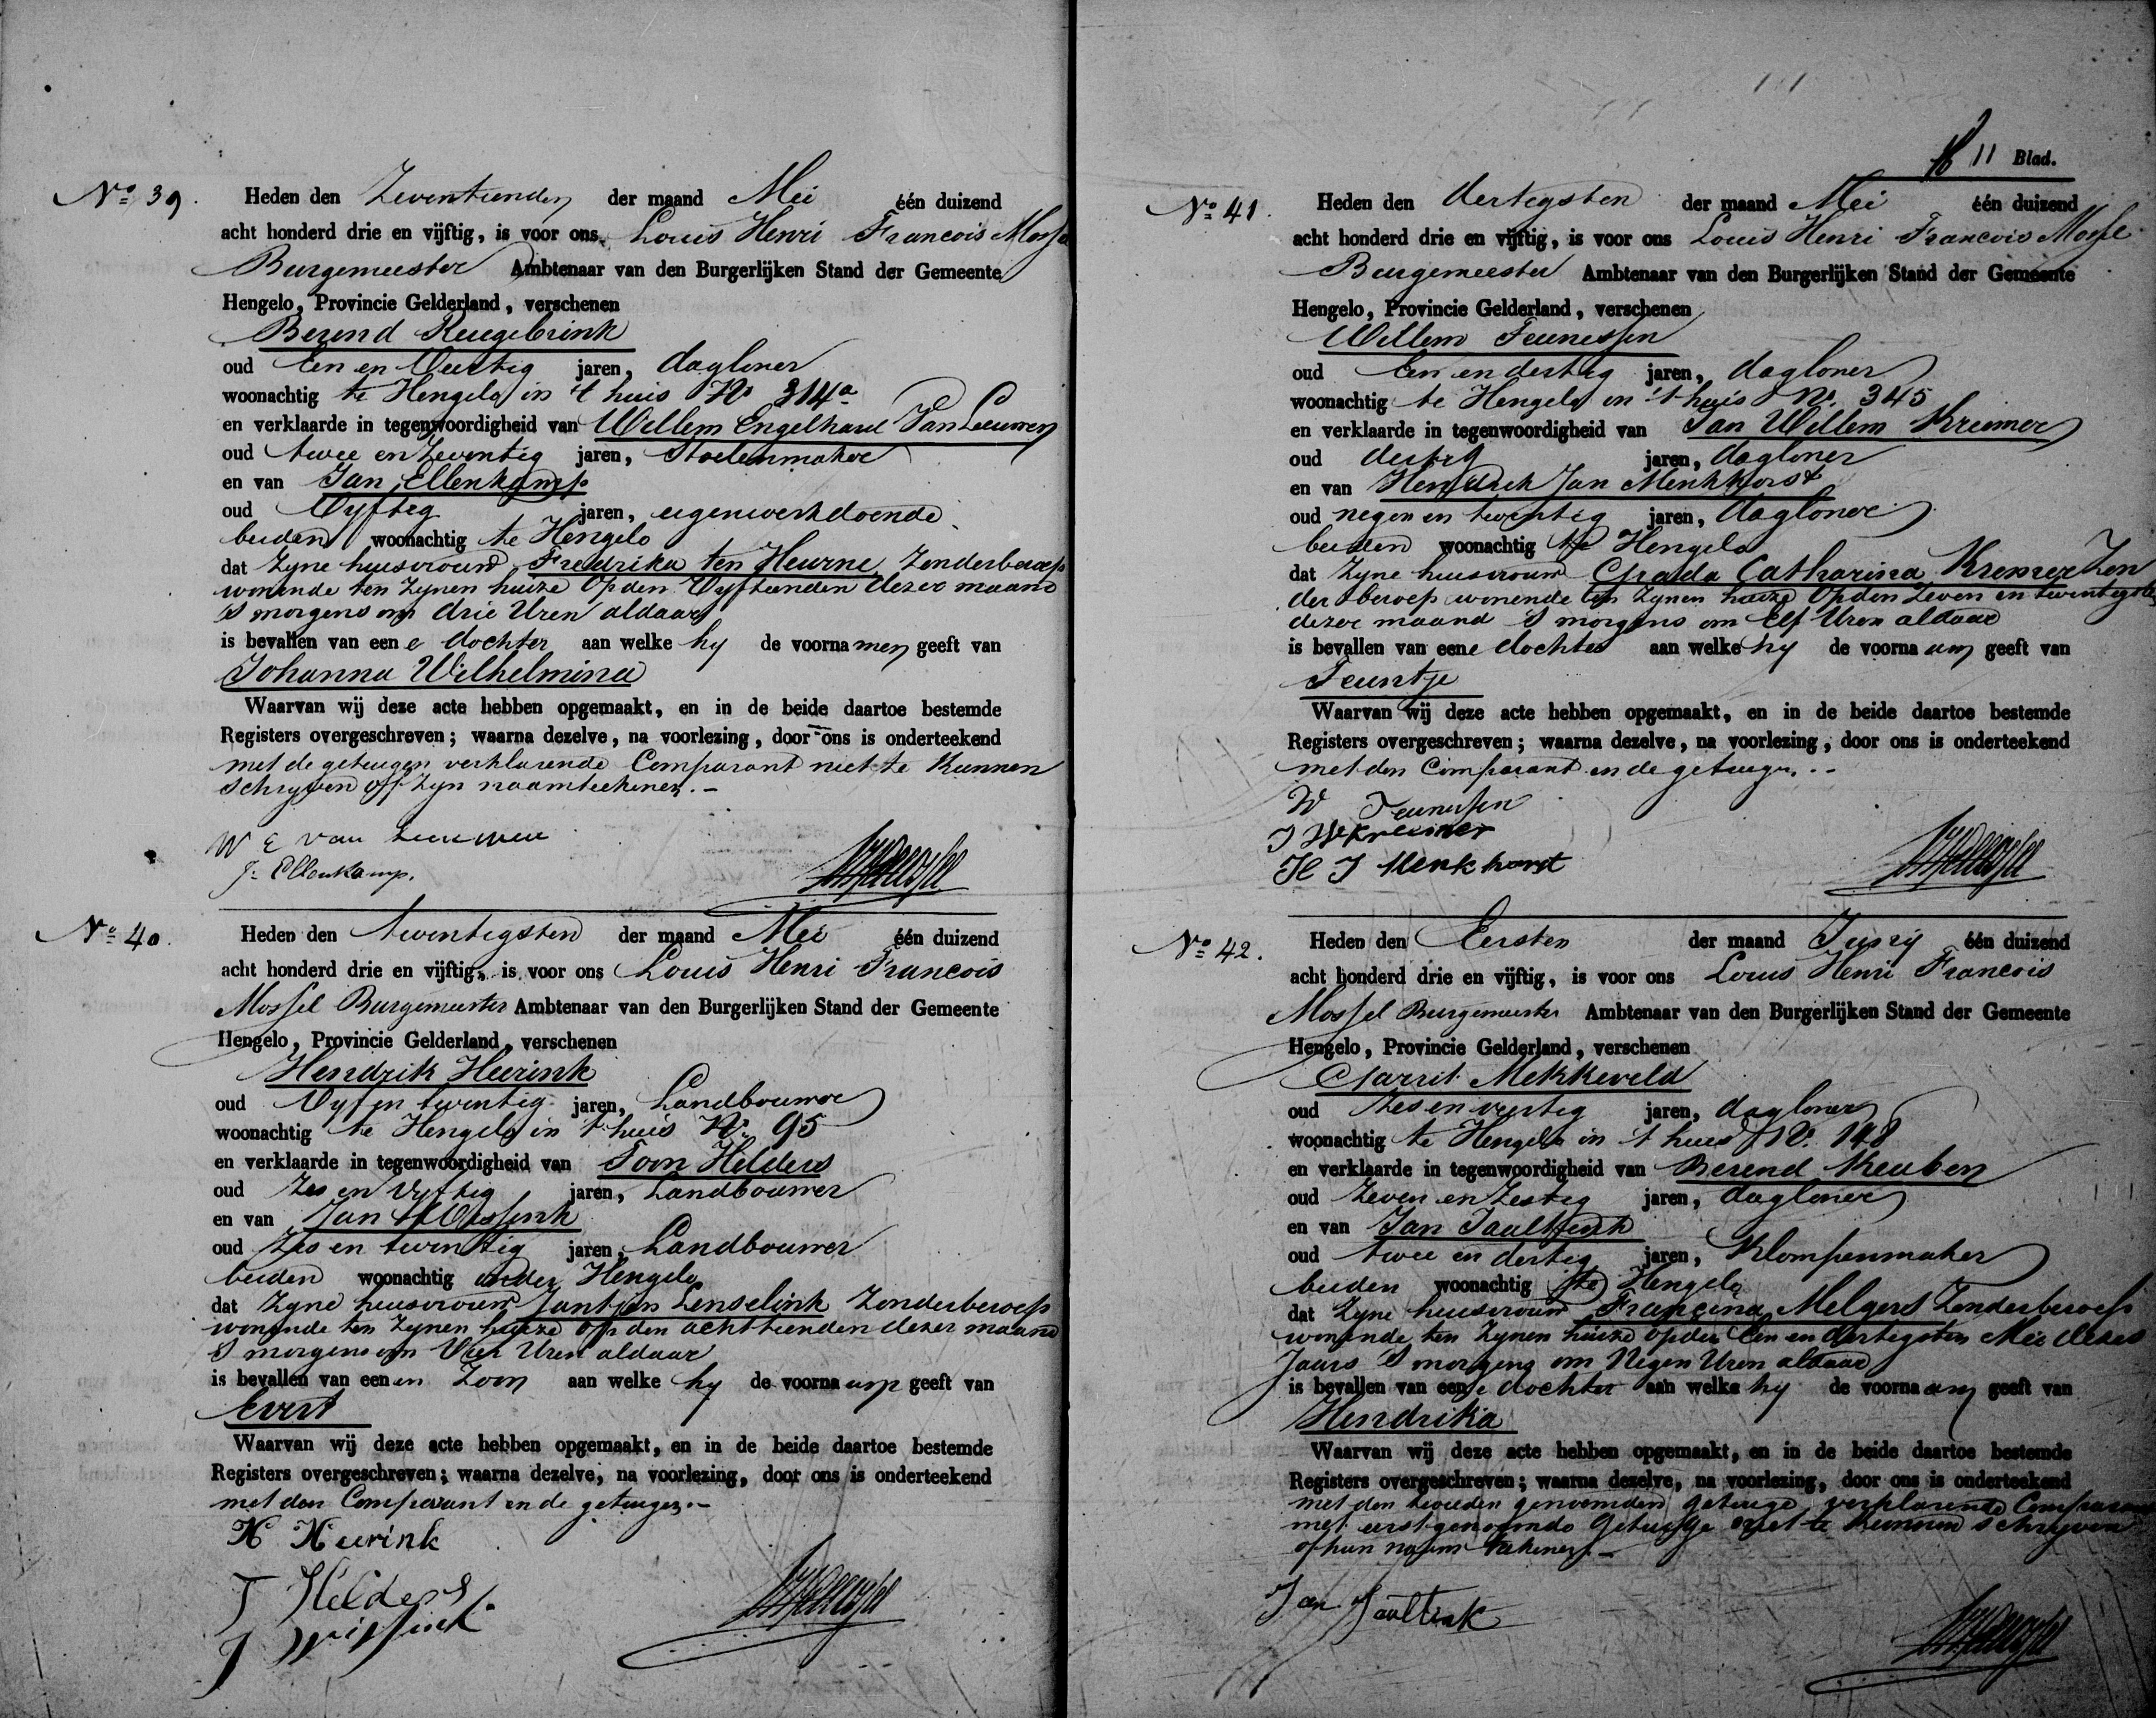 No 39. Heden den Zeventienden der maand Mei één duizend
acht honderd drie en vijftig, is voor ons Louis Henri Francois Mossel
Burgemeester Ambtenaar van den Burgerlijken Stand der Gemeente
Hengelo, Provincie Gelderland, verschenen
Berend Reugebrink
oud Een en Veertig jaren, dagloner
woonachtig te Hengelo in 't huis No 314a
en verklaarde in tegenwoordigheid van Willem Engelhard Van Leeuwen
oud twee en zeventig jaren, Stoelenmaker
en van Jan Ellenkamp
oud Vyftig jaren, eigenwerkdoende
beiden woonachtig te Hengelo
dat Zyne huisvrouw Fredrika ten Heurne Zonderberoep
wonende ten Zynen huize Op den Vyftienden dezer maand
's morgens om drie Uren aldaar
is bevallen van eene dochter aan welke hy de voornamen geeft van
Johanna Wilhelmina
Waarvan wij deze acte hebben opgemaakt, en in de beide daartoe bestemde
Registers overgeschreven; waarna dezelve, na voorlezing, door ons is onderteekend
met de getuigen verklarende Comparant niet te Kunnen
Schryven off Zyn naamteekenen.-
W E van Leeuwen
J. Ellenkamp.
No 40. Heden den twentigsten der maand Mei één duizend
acht honderd drie en vijftig, is voor ons Louis Henri Francois
Mossel Burgemeester Ambtenaar van den Burgerlijken Stand der Gemeente
Hengelo, Provincie Gelderland, verschenen
Hendrik Heerink
oud Vyf en twintig jaren, Landbouwer
woonachtig te Hengelo in 't huis No 95
en verklaarde in tegenwoordigheid van Toon Helders
oud Zes en Vyftig jaren, Landbouwer
en van Jan Wissink
oud Zes en twintig jaren, Landbouwer
beiden woonachtig onder Hengelo
dat Zyne huisvrouw Jantjen Lenselink Zonderberoep
wonende ten Zynen huize op den achttienden dezer maand
's morgens om Vier Uren aldaar
is bevallen van eenen Zoon aan welke hy de voornaam geeft van
Evert
Waarvan wij deze acte hebben opgemaakt, en in de beide daartoe bestemde
Registers overgeschreven; waarna dezelve, na voorlezing, door ons is onderteekend
met den Comparant en de getuigen.-
H Heerink
T Helders
J Wissink
11 Blad.
No 41. Heden den dertigsten der maand Mei één duizend
acht honderd drie en vijftig, is voor ons Louis Henri Francois Mossel
Burgemeester Ambtenaar van den Burgerlijken Stand der Gemeente
Hengelo, Provincie Gelderland, verschenen
Willem Teunissen
oud Een en dertig jaren, dagloner
woonachtig te Hengelo in 't huis No. 345
en verklaarde in tegenwoordigheid van Jan Willem Kreimer
oud dertig jaren, dagloner
en van Hendrik Jan Menkhorst
oud negen en twentig jaren, dagloner
beiden woonachtig te Hengelo
dat Zyne huisvrouw Grada Catharina Kremer Zon
der beroep wonende ten Zynen huize Op den Zeven en twentigsten
dezer maand 's morgens om Elf Uren aldaar
is bevallen van eene dochter aan welke hy de voornaam geeft van
Teuntje
Waarvan wij deze acte hebben opgemaakt, en in de beide daartoe bestemde
Registers overgeschreven; waarna dezelve, na voorlezing, door ons is onderteekend
met den Comparant en de getuigen.-
W Teunissen
J W Kreimer
H J Menkhorst
No 42. Heden den Eersten der maand Juny één duizend
acht honderd drie en vijftig, is voor ons Louis Henri Francois
Mossel Burgemeester Ambtenaar van den Burgerlijken Stand der Gemeente
Hengelo, Provincie Gelderland, verschenen
Garrit Mekkeveld
oud Zes en veertig jaren, dagloner
woonachtig te Hengelo in 't huis No. 148
en verklaarde in tegenwoordigheid van Berend Kreuben
oud Zeven en Zestig jaren, dagloner
en van Jan Jaaltink
oud twee en dertig jaren, Klompenmaker
beiden woonachtig te Hengelo
dat Zyne huisvrouw Francina Melgers Zonderberoep
wonende ten Zynen huize op den Een en dertigsten Mei dezes
Jaars 's morgens om Negen Uren aldaar
is bevallen van eene dochter aan welke hy de voornaam geeft van
Hendrika
Waarvan wij deze acte hebben opgemaakt, en in de beide daartoe bestemde
Registers overgeschreven; waarna dezelve, na voorlezing, door ons is onderteekend
met den tweeden genoemden getuige verklarende Comparant
met eerstgenoemde Getuige niet te Kunnen schryven
of hun naam tekenen.-
Jan Jaaltink